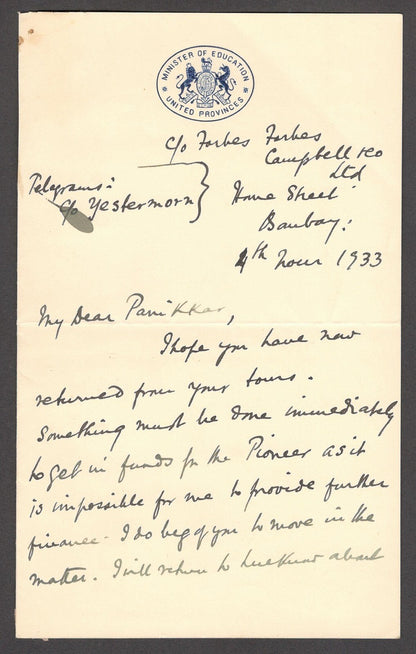 MINISTER OF EDUCATION
UNITED PROVINCES
c/o Forbes Forbes
Campbell & Co
Ltd
Telegrams:
c/o Yestermorn
Home Street
Bombay:
4th Novr 1933
My Dear Panikkar,
I hope you have now
returned from your tours.
Something must be done immediately
to get in funds for the Pioneer as it
is impossible for me to provide further
finance. I do beg of you to move in the
matter. I will return to Lucknow about